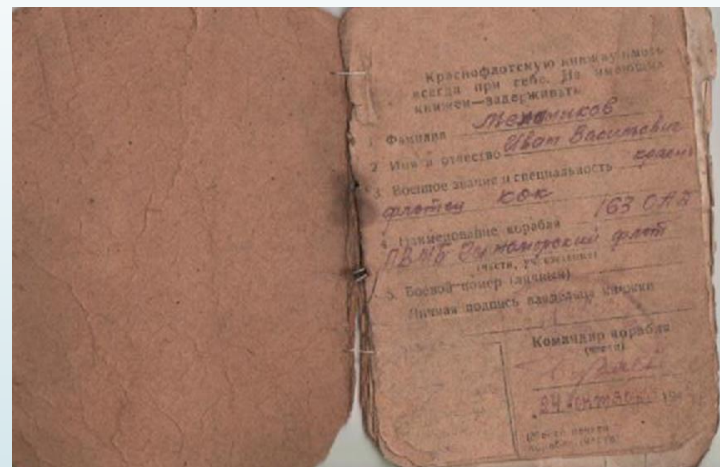 Краснофлотскую книжку иметь
всегда при себе. Не имеющих
книжек—задерживать
1. Фамилия Мельников
2. Имя и отчество Иван Васильевич
3. Военное звание и специальность красно
флотец кок
4. Наименование корабля 163 ОАБ
ПВМБ Черноморский флот
(части, учреждения)
5. Боевой номер (личный)
Личная подпись владельца книжки
Командир корабля
(части)
24 октября 194
(Место печати
корабля (части)